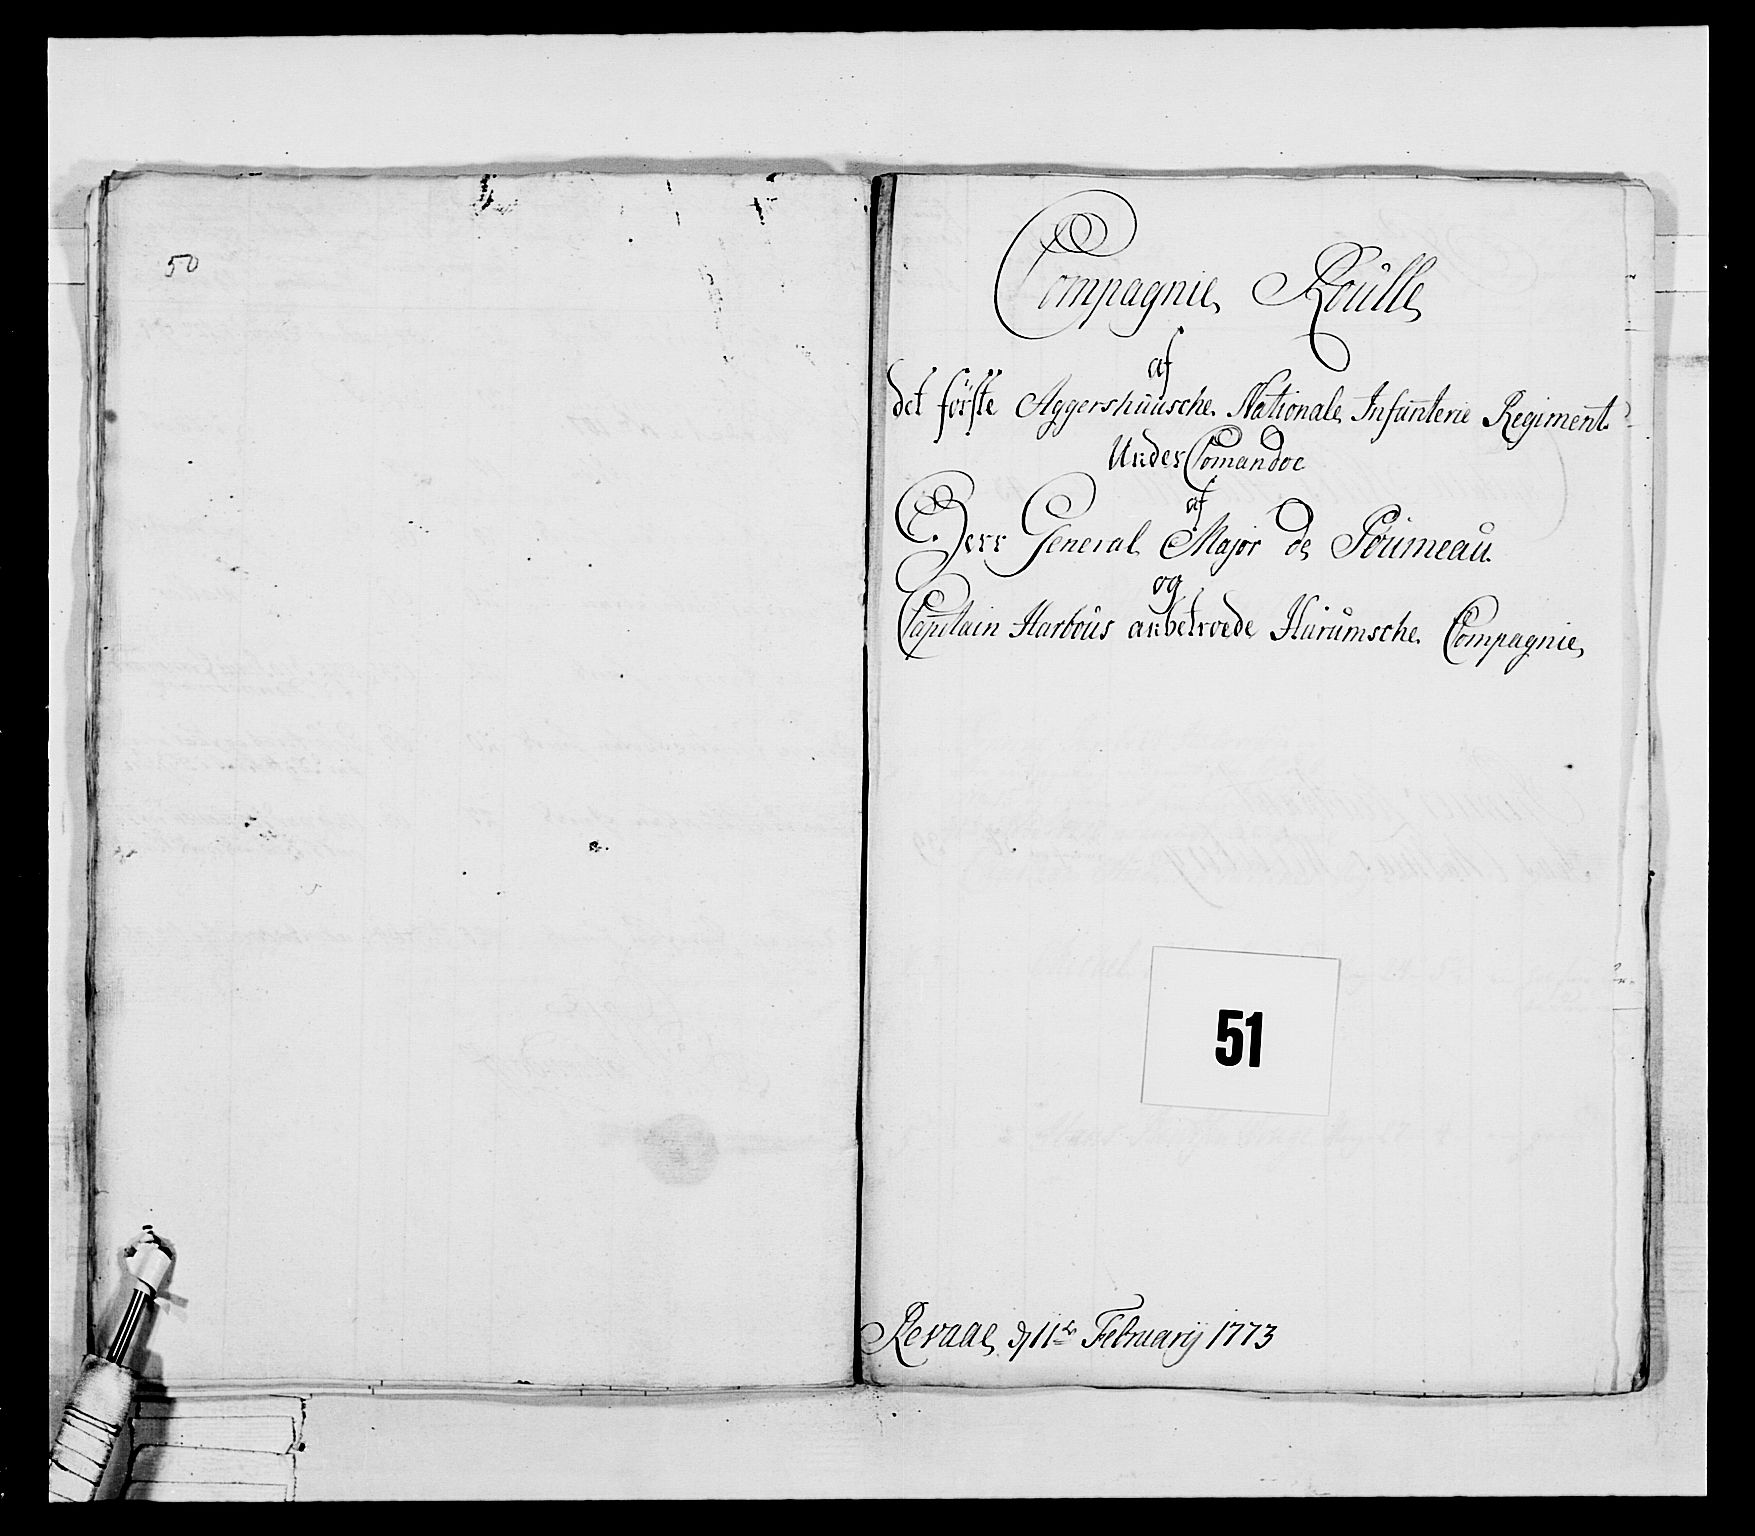 50
Compagnie Roulle
af
det förste Aggershuusche Nationale Infanterie Regiment
Under Comandoe
af
Herr General Major de Poumeau
og
Capitain Harboůs anbetroede Hurumsche Compagnie
51
Revaae d 11te Februarij 1773